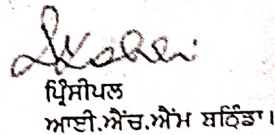 ਪ੍ਰਿੰਸੀਪਲ
ਆਈ.ਐੱਚ.ਐੱਮ ਬਠਿੰਡਾ।